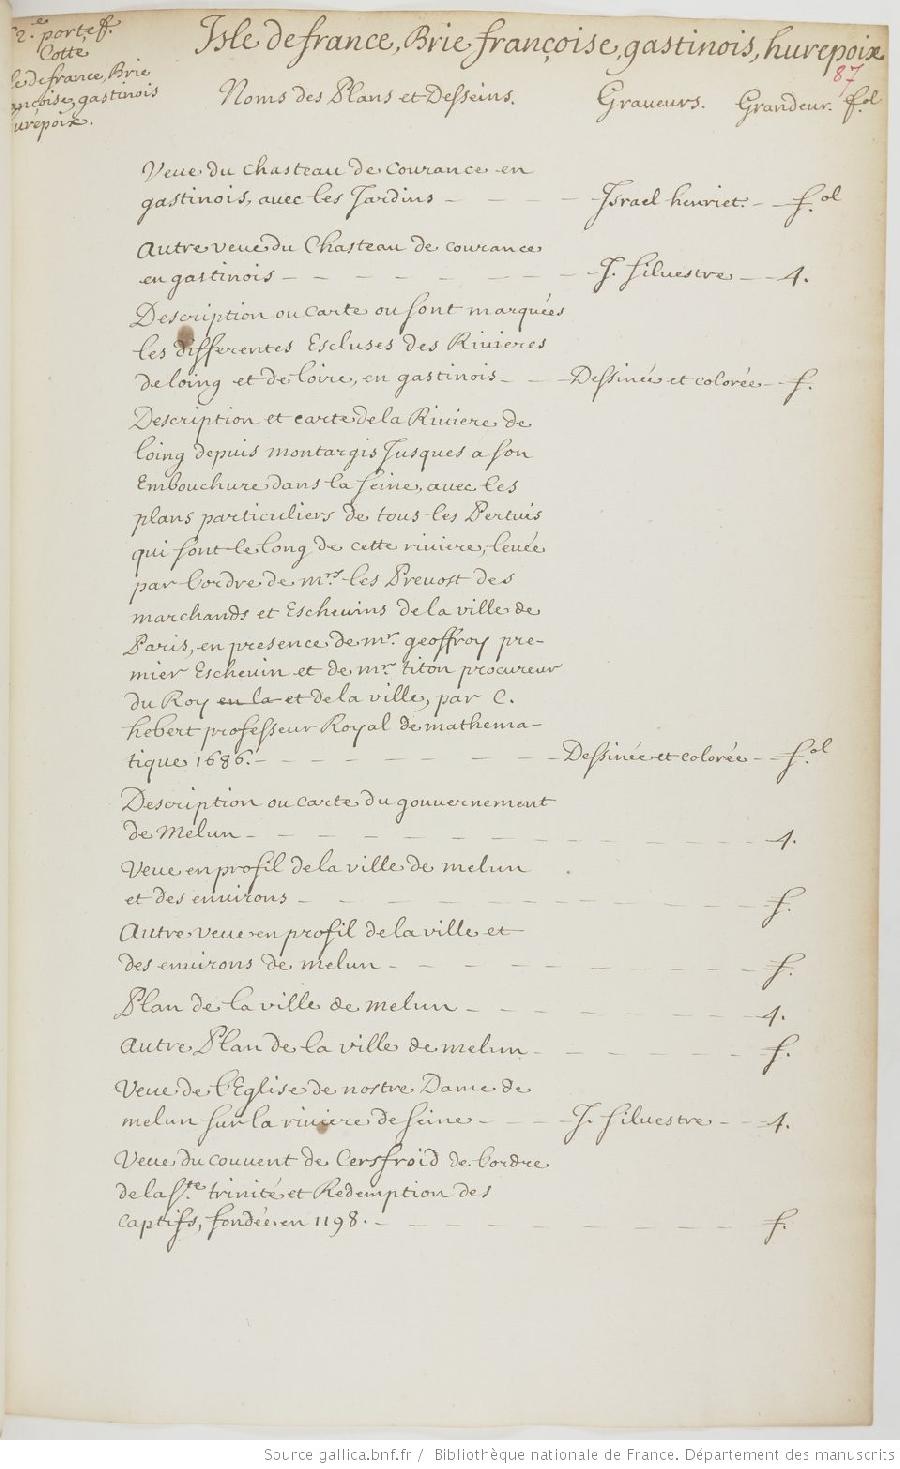 2.e portef.
Cotté
le de france, Brie
ançoise, gastinois
urepoix.
Isle de france, Brie françoise, gastinois, hurepoix
87
Noms des Plans et Desseins. Graveurs. Grandeur. f.ol
Veue du chasteau de courance en
gastinois, avec les Jardins - - - - Israel henriet. - f.ol
Autre veue du Chasteau de courance
en gastinois - - - - - - - - J. silvestre - 4.
Description ou carte ou sont marquées
les differentes Escluses des Rivieres
de loing et de loire, en gastinois - - Dessinée et colorée - f.
Description et carte de la Riviere de
loing depuis montargis Jusques a son
Embouchure dans la seine, avec les
plans particuliers de tous les Pertués
qui sont le long de cette riviere, levée
par l'ordre de m.rs les Prevost des
marchands et Eschevins de la ville de
Paris, en presence de m.r geoffroy pre-
mier Eschevin et de m.r titon procureur
du Roy en la et de la ville, par C.
hebert professeur Royal de mathema-
tique 1686. - - - - - - - - Dessinée et colorée - f.ol
Description ou carte du gouvernement
de Melun - - - - - - - - 4.
Veue en profil de la ville de melun
et des environs - - - - - - - - f.
Autre veue en profil de la ville et
des environs de melun - - - - - - f.
Plan de la ville de melun - - - - - - 4.
Autre Plan de la ville de melun - - - - - f.
Veue de l'Eglise de nostre Dame de
melun sur la riviere de seine - - - J. silvestre - - 4.
Veue du couvent de Cersfroid de l'ordre
de la S.te trinité et Redemption des
captifs, fondée en 1198. - - - - - - f.
Source gallica.bnf.fr / Bibliothèque nationale de France. Département des manuscrits